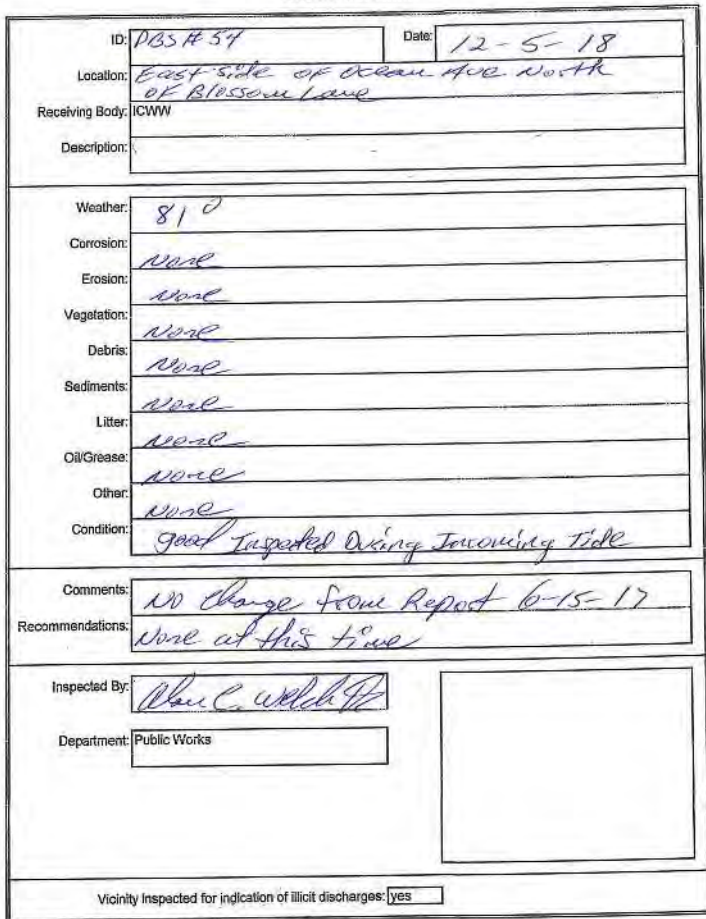 ID: PBS # 54 Date: 12-5-18
Location: East side of Ocean Ave North
of Blossom Lane
Receiving Body: ICWW
Description:
Weather: 81°
Corrosion: None
Erosion: None
Vegetation: None
Debris: None
Sediments: None
Litter: None
Oil/Grease: None
Other: None
Condition: good Inspected During Incoming Tide
Comments: No change from Report 6-15-17
Recommendations: None at this time
Inspected By: Alan C. Welch
Department: Public Works
Vicinity Inspected for indication of illicit discharges: yes